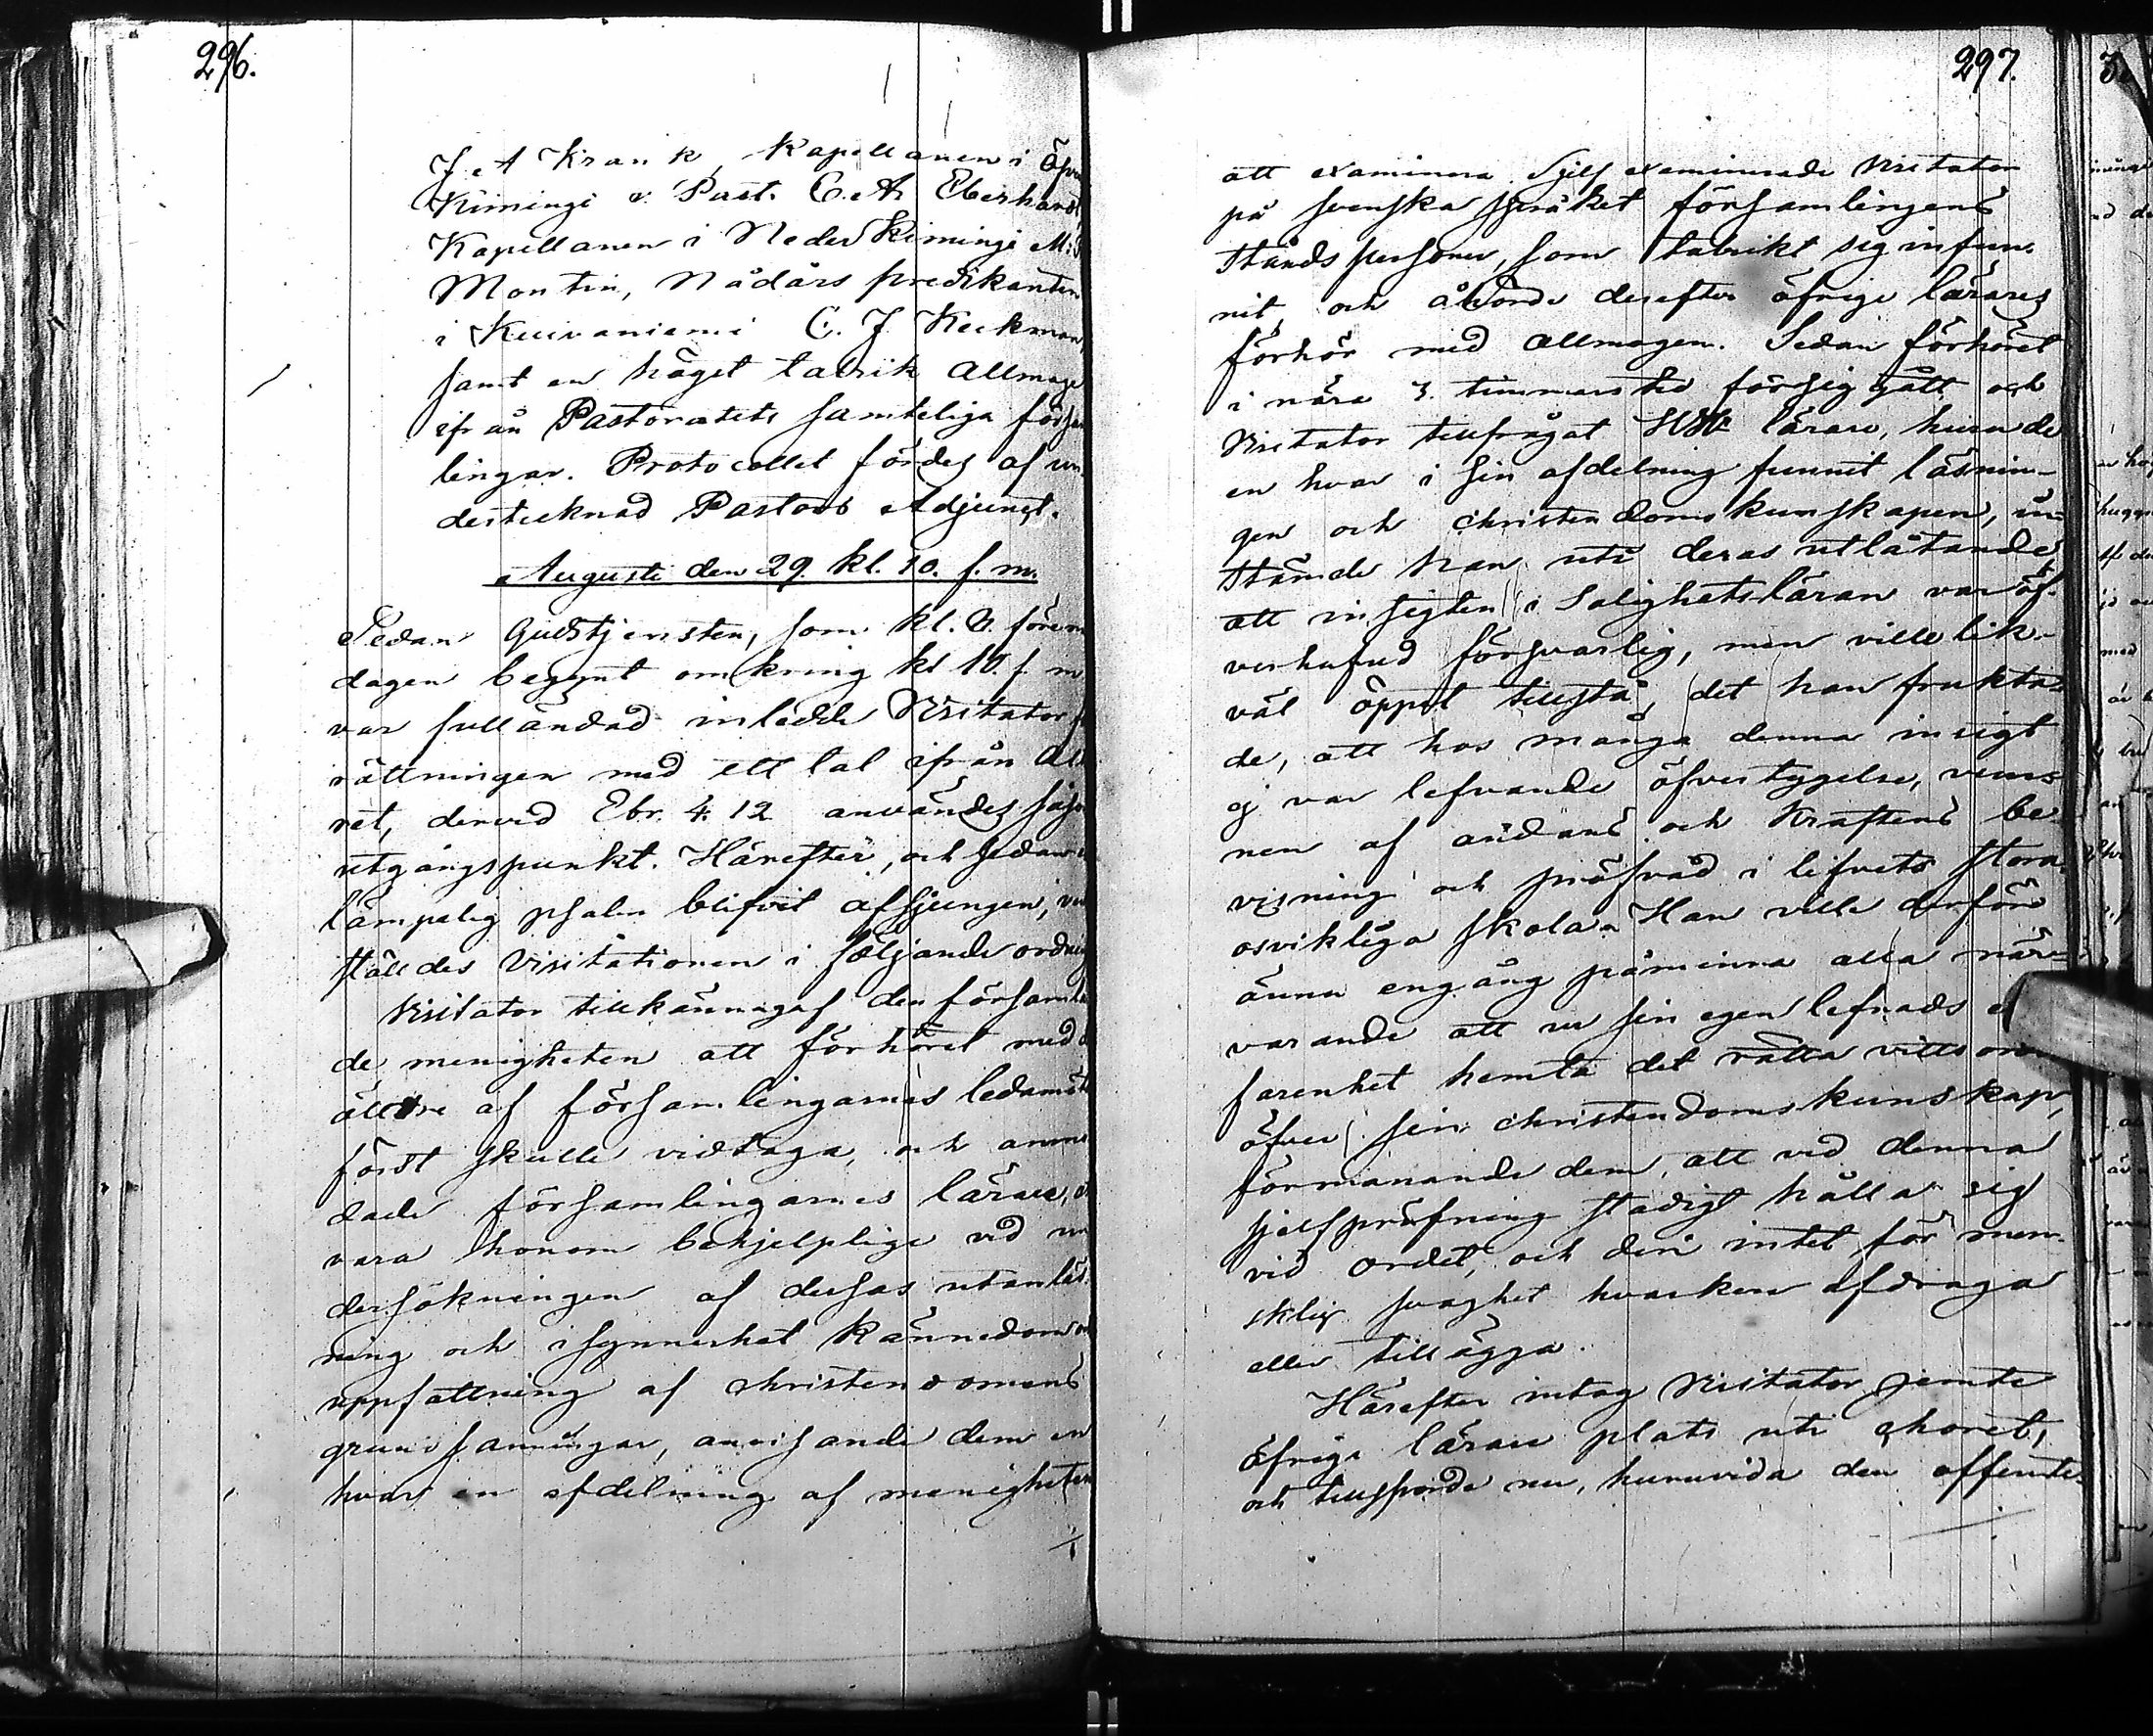 296.
J. A Krank, Kapellanen i Öfver
Kiminge v. Past. E. A. Eberhardt,
Kapellanen i Neder Kiminge M:
Montin, Nådårs predikanten
i Kuivaniemi C. J. Keckman,
samt en höget talrik allmoge
ifrån Pastoratets samteliga försam
lingar. Protocollet fördes af un-
dertecknad Pastors Adjunct.
Augusti den 29. kl. 10. f. m.
Sedan Gudstjensten, som kl. 8. förem
dagen begynt omkring kl 10. f. m
var fulländad inledde Visitator
rättningen med ett tal ifrån Alta
ret, dervid Ebr. 4. 12 användes såsom
utgångspunkt. Härefter, och sedan
lämpelig psalm blifvit afsjungen,
ställdes Visitationen i följande ordning
Visitator tillkännagaf den församla
de menigheten att förhöret med
älldre af församlingarnes ledamöter
först skulle vidtaga, och anmo
dade församlingarnes lärare,
vara honom behjelplige vid un
dersökningen af dessas utanläs
ning och i synnerhet kännedom och
uppfattning af christendomens
grundsanningar, anvisande dem en
hvar en afdelning af menigheten
297.
att examinera. Sjelf examinerade Visitator
på svenska språket församlingens
Ståndspersoner, som talrikt sig infun-
nit, och åhörde derefter öfrige lärares
förhör med allmogen. Sedan förhöret
i nära 3. timmars tid försiggått och
Visitator tillfrågat lärare, huru de
en hvar i sin afdelning funnit läsnin-
gen och christendomskunskapen, in-
stämde han uti deras utlåtande
att insigten i Salighetsläran var öf-
verhufud försvarlig, men ville lik-
väl öppet tillstå, det han frukta-
de, att hos många denna insigt
ej var lefvande öfvertygelse, vun-
nen af andans och kraftens be-
visning och pröfvad i lifvets stora
osvikliga skola. Han ville derföre
ännu engång påminna alla när-
varande att ur sin egen lefnads er
farenhet hemta det rätta vittsord
öfver sin christendomskunskap,
förmanande dem, att vid denna
sjelfpröfning stadigt hålla sig
vid ordet, och deri intet för men-
sklig svaghet hvarken afdraga
eller tillägga.
Härefter intog Visitator jemte
öfrige lärare plats uti choret,
och tillsporde nu, huruvida den offente-